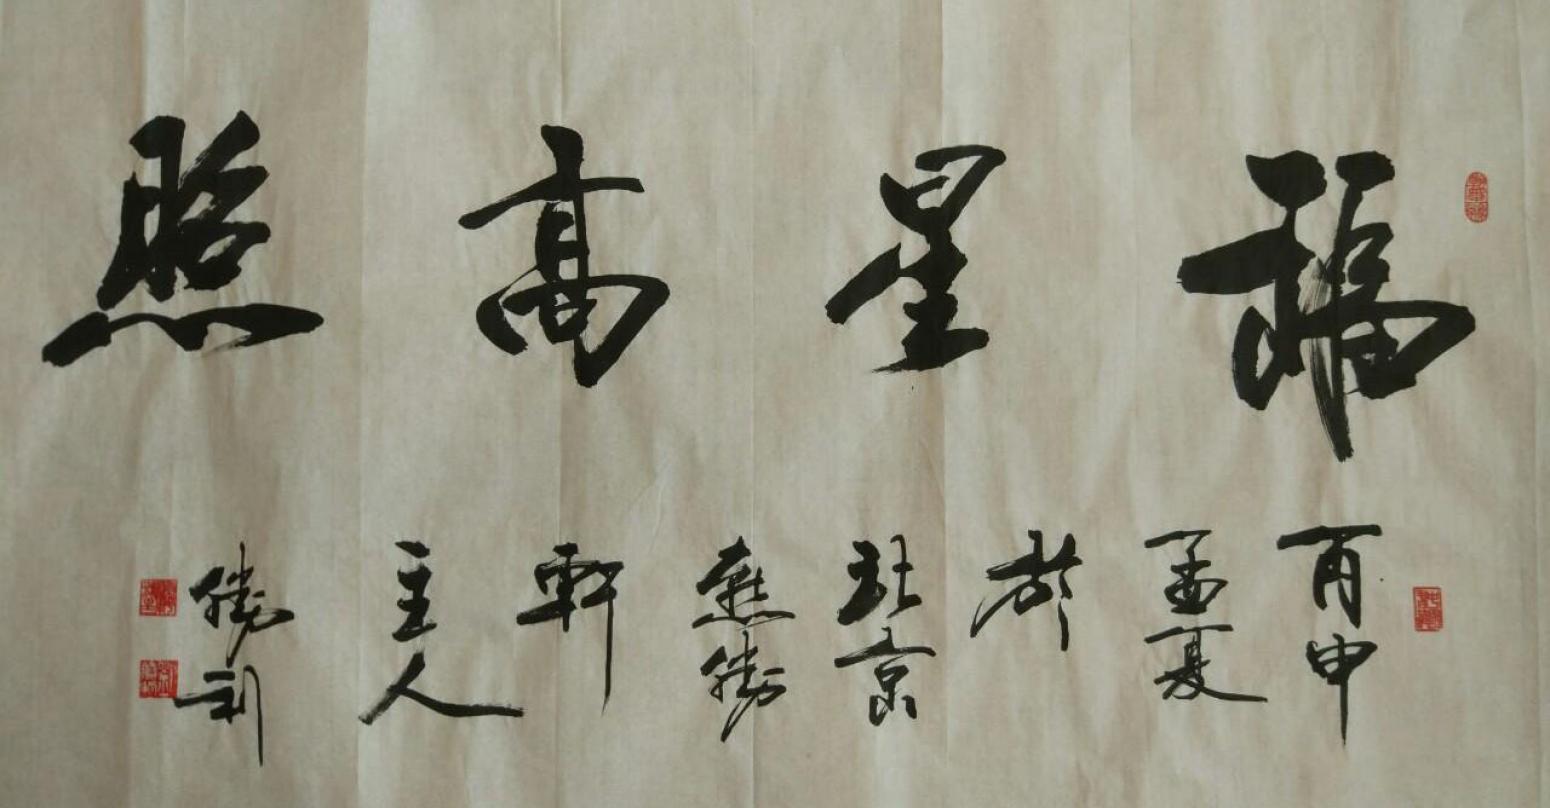 福星高照
丙申
孟夏
於
北京
燕勝
軒
主人
勝利